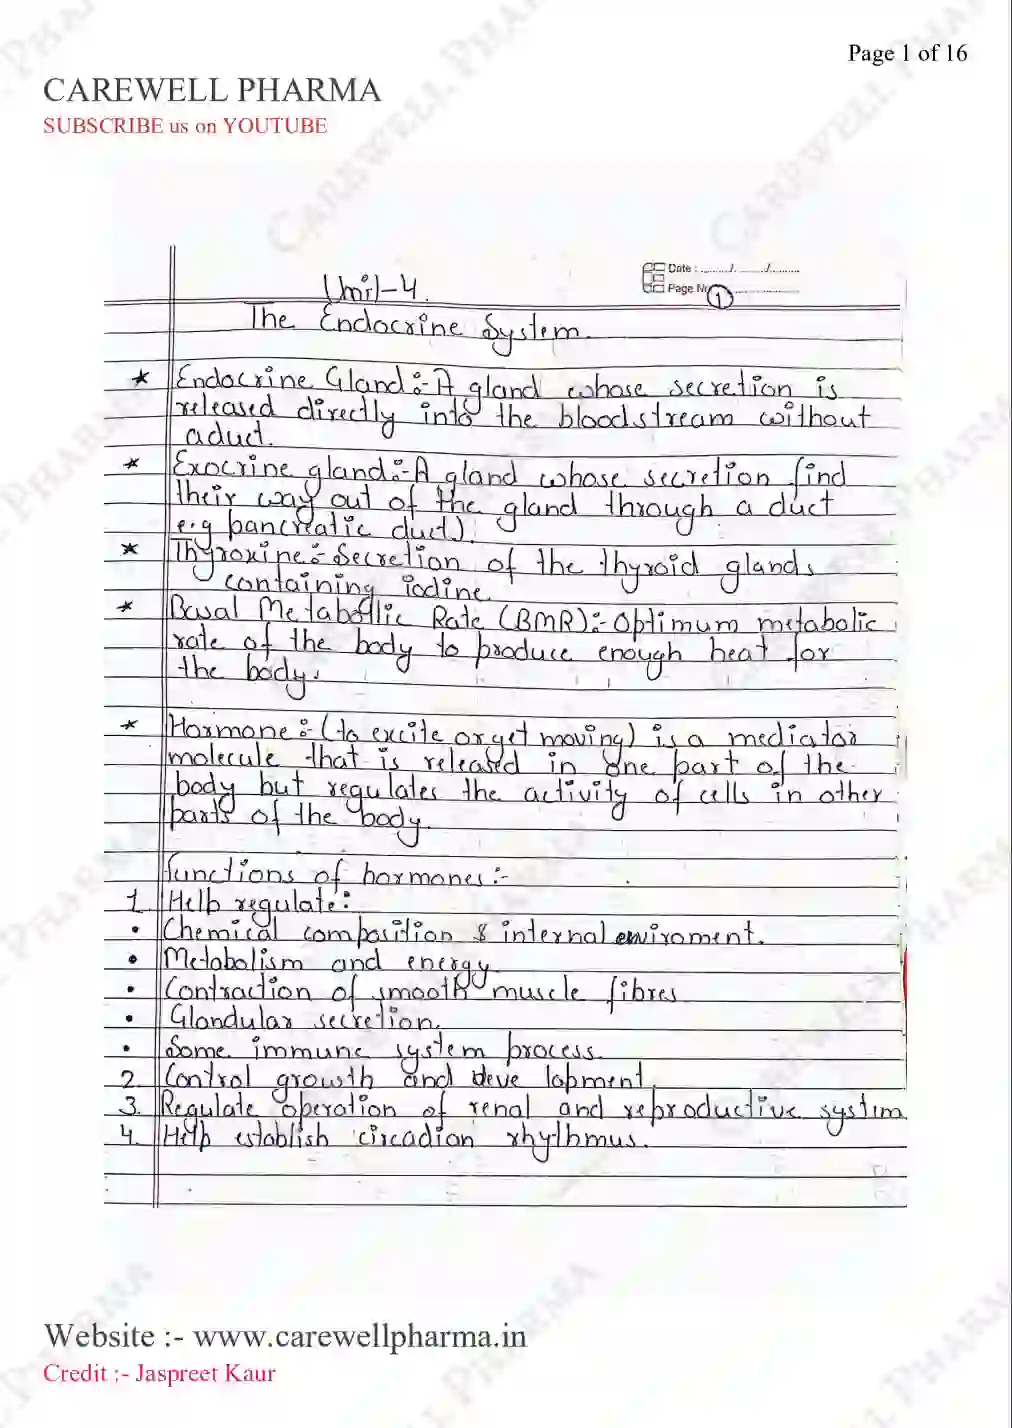 Page 1 of 16
CAREWELL PHARMA
SUBSCRIBE us on YOUTUBE
Date : ........./. ........./.........
Page No. 1
Unit-4.
The Endocrine System.
* Endocrine Gland:- A gland whose secretion is
released directly into the bloodstream without
a duct.
* Exocrine gland:- A gland whose secretion find
their way out of the gland through a duct
e.g pancreatic duct).
* Thyroxine:- Secretion of the thyroid glands
containing iodine.
* Basal Metabollic Rate (BMR):- Optimum metabolic
rate of the body to produce enough heat for
the body.
* Hormone:- (to excite or get moving) is a mediator
molecule that is released in one part of the
body but regulates the activity of cells in other
parts of the body.
Functions of hormones:-
1. Help regulate:
• Chemical composition & internal enviroment.
• Metabolism and energy
• Contraction of smooth muscle fibres
• Glandular secretion.
• Some immune system process.
2. Control growth and deve lopment.
3. Regulate operation of renal and reproductive system
4. Help establish circadian rhythmus.
Website :- www.carewellpharma.in
Credit :- Jaspreet Kaur